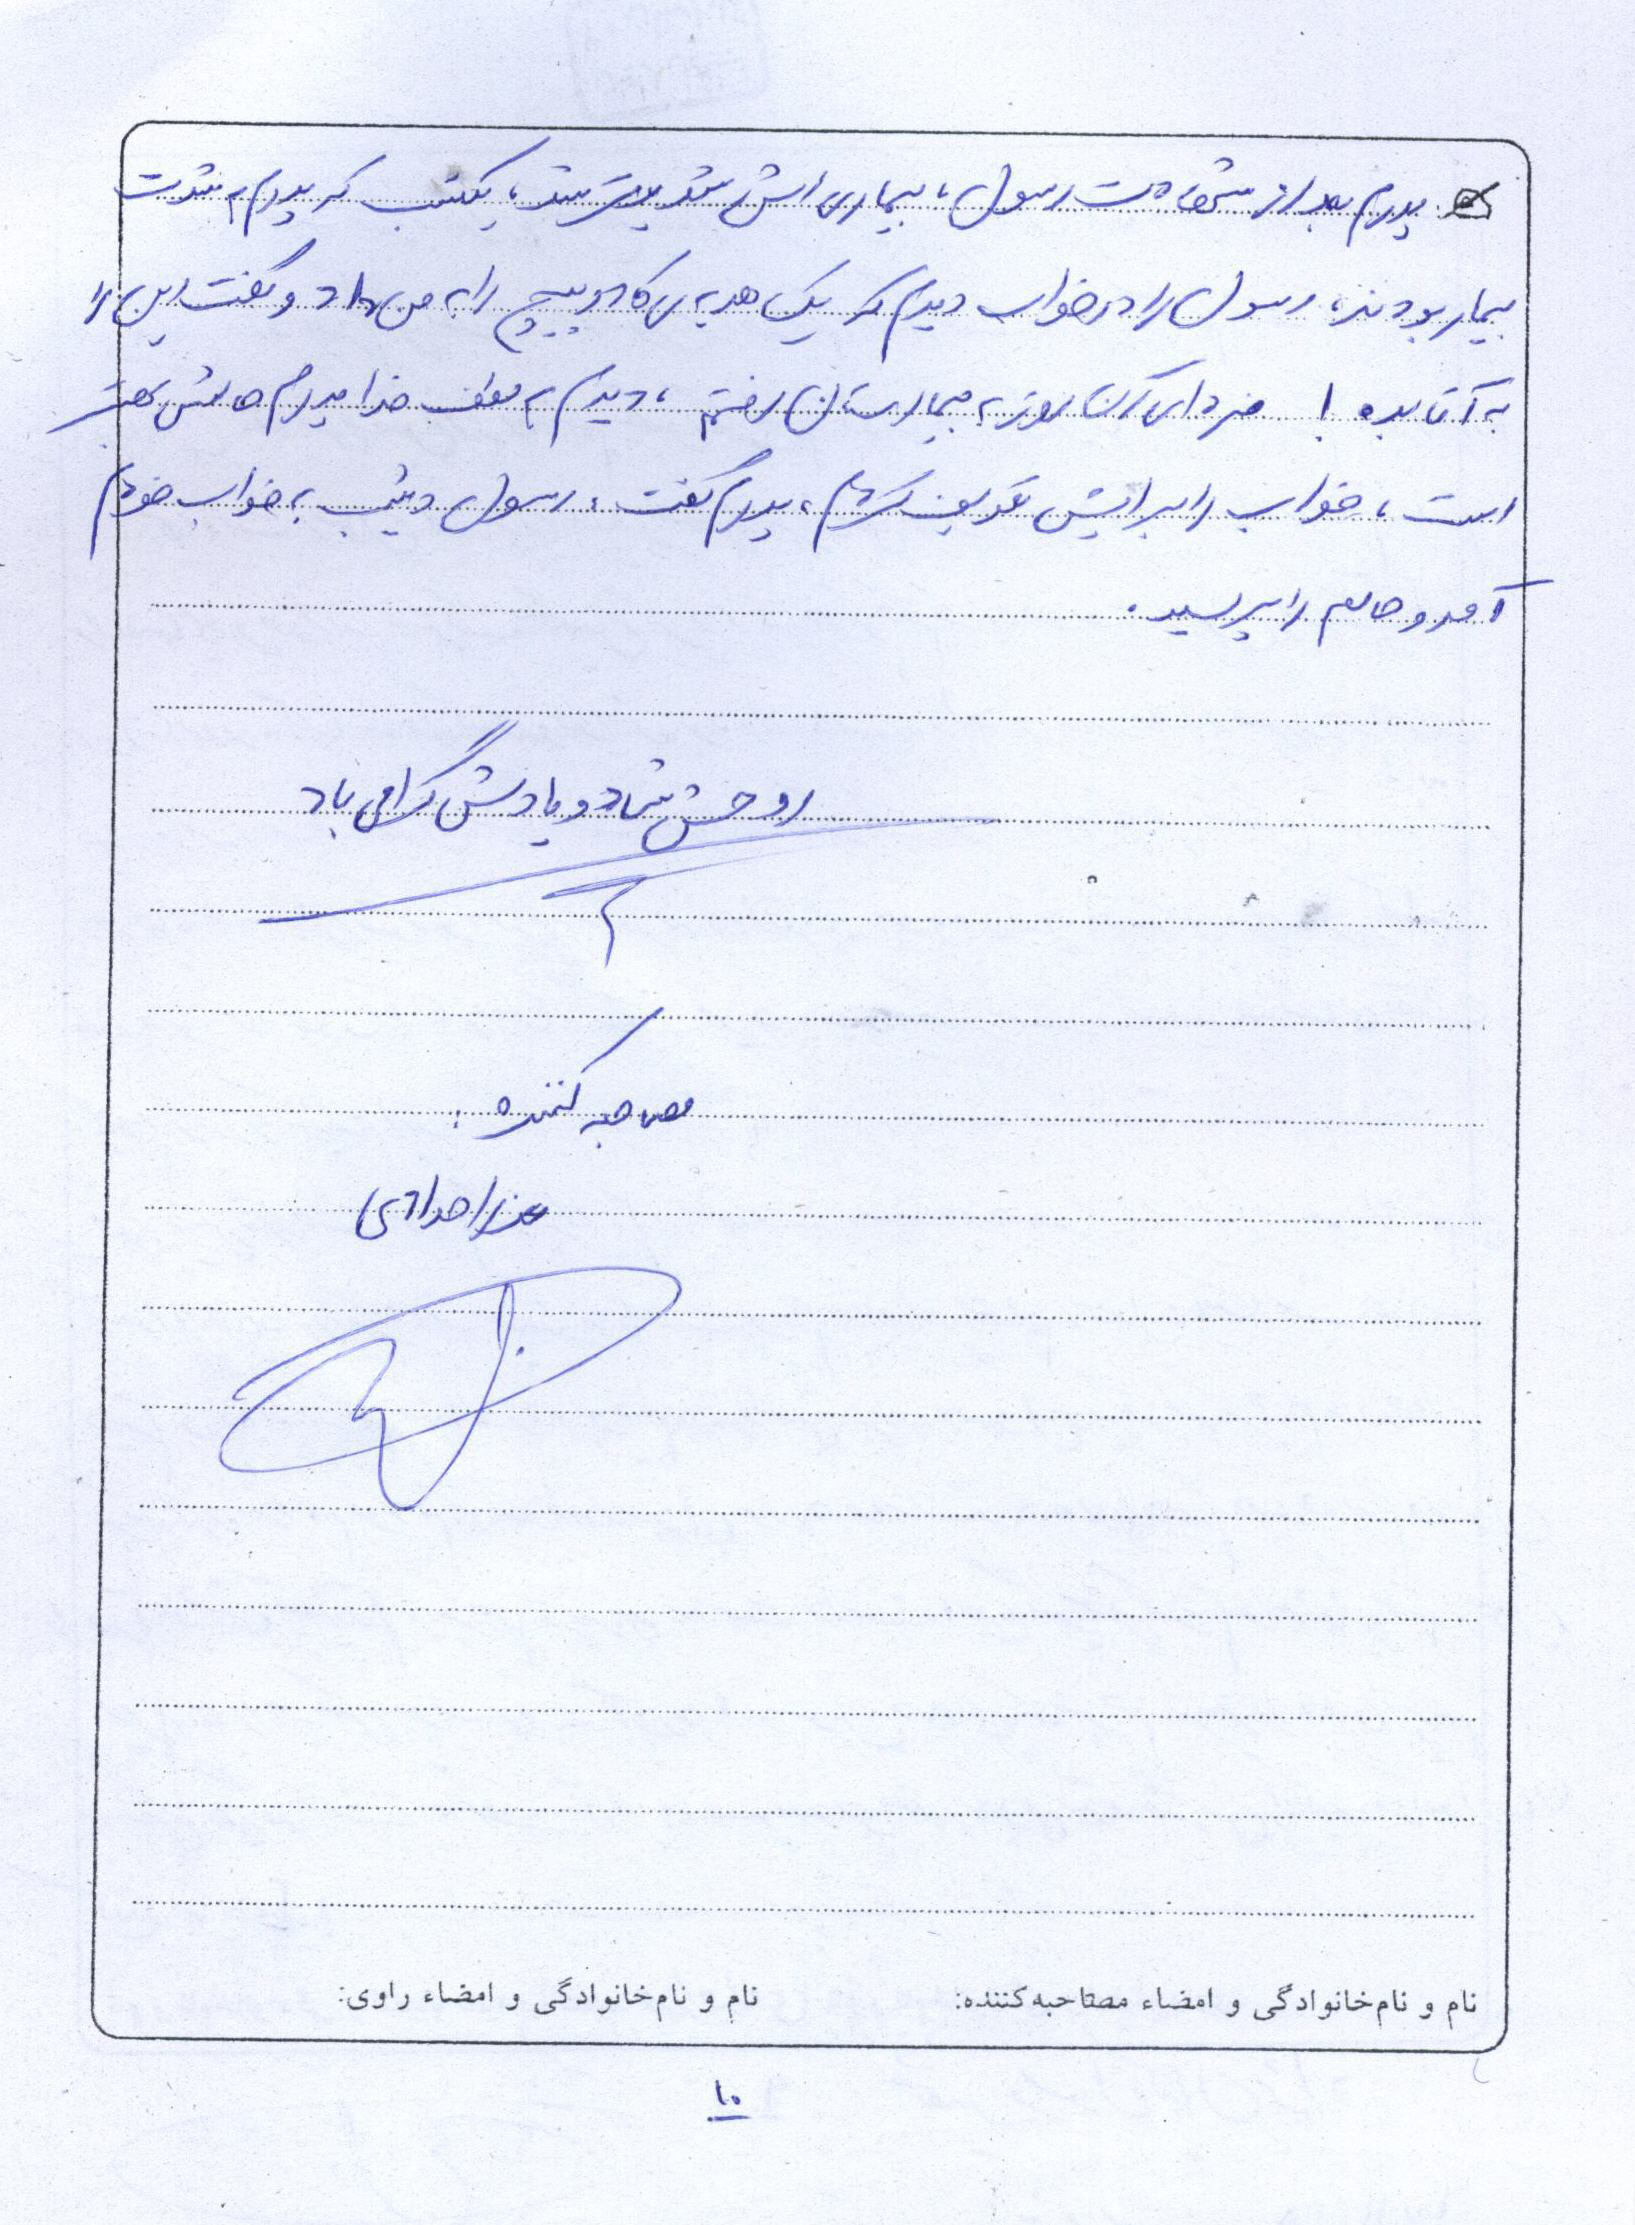 پدرم بعد از شهادت رسول، بیماری اش شدیدتر شد، یکشب که پدرم به شدت
بیمار بودند، رسول را در خواب دیدم که یک هدیه ی کادوپیچ را به من داد و گفت این را
به آقا بده! فردای آن روز به بیمارستان رفتم، دیدم به لطف خدا پدرم حالش بهتر
است، خواب را برایش تعریف کردم، پدرم گفت: رسول دیشب به خواب خودم
آمد و حالم را پرسید.
روحش شاد و یادش گرامی باد
مصاحبه کننده:
عذرا هدادی
نام و نام‌خانوادگی و امضاء مصاحبه‌کننده: نام و نام‌خانوادگی و امضاء راوی:
۱۰